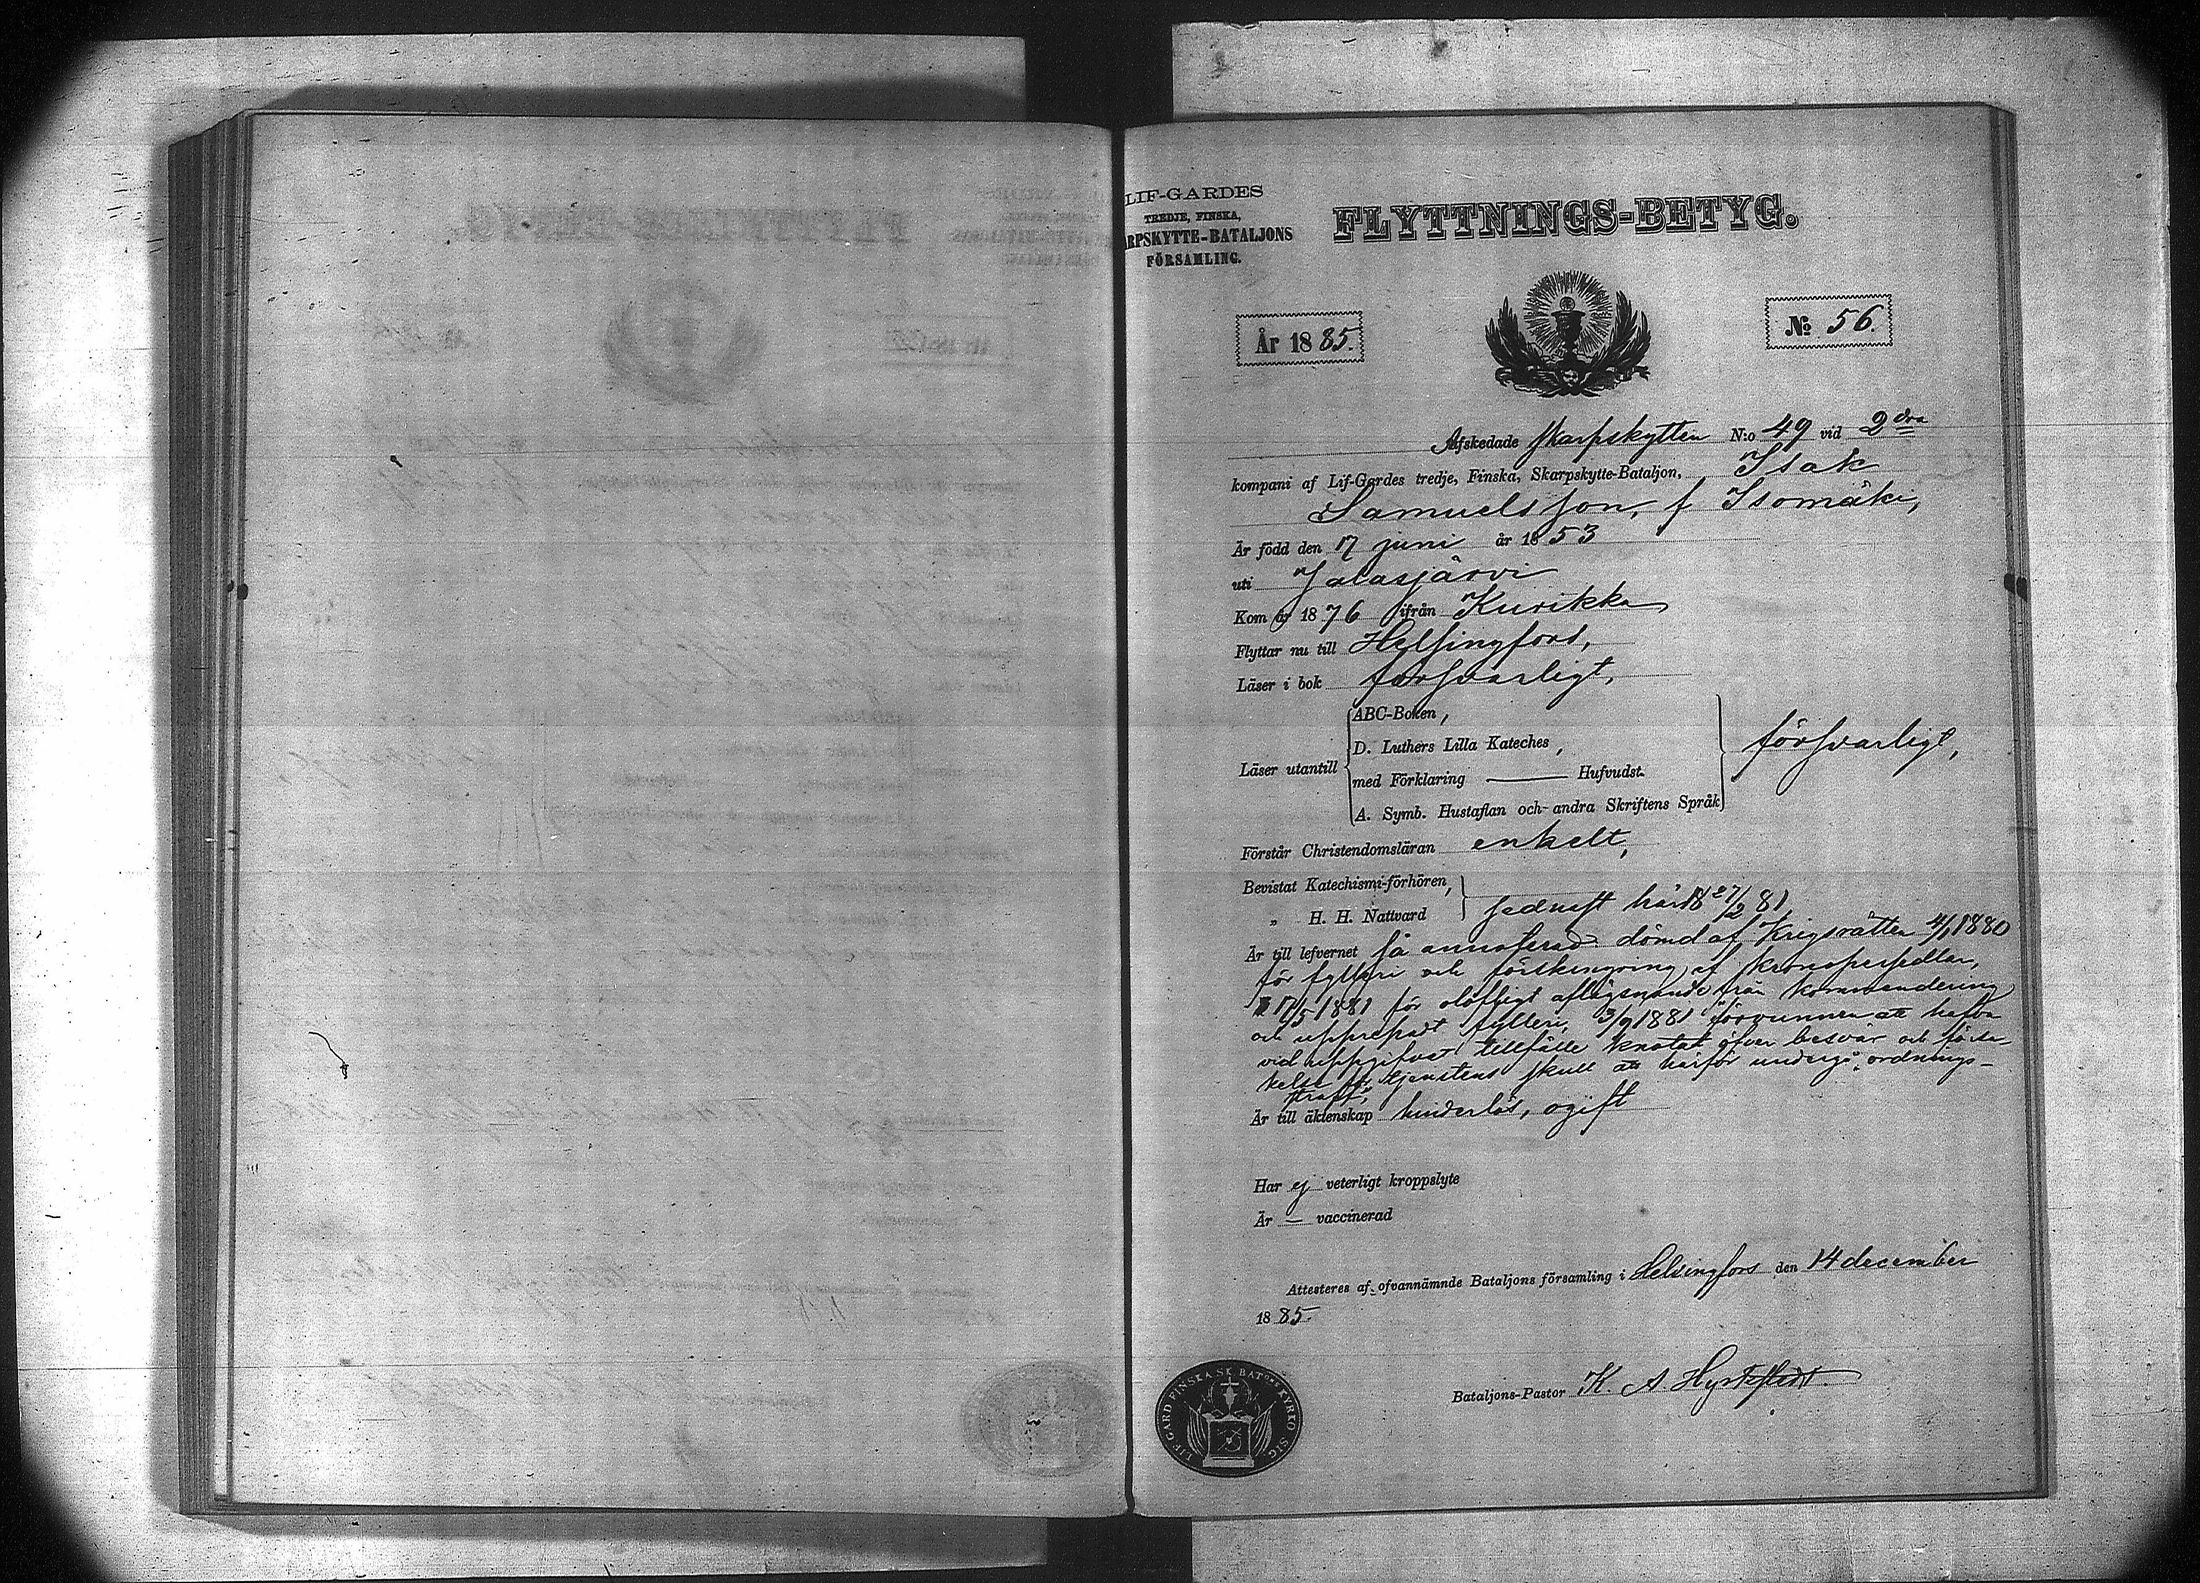 LIF-GARDES
TREDJE, FINSKA,
ARPSKYTTE-BATALJONS
FÖRSAMLING.
FLYTTNINGS-BETYG.
År 1885.
No 56.
Afskedade skarpskytten N:o 49 vid 2dra
kompani af Lif-Gardes tredje, Finska, Skarpskytte-Bataljon, Isak
Samuelsson, f Isomäki,
Är född den 17 juni år 1853
uti Jalasjärvi
Kom år 1876 ifrån Kurikka
Flyttar nu till Helsingfors,
Läser i bok försvarligt,
ABC-Boken,
D. Luthers Lilla Kateches,
Läser utantill
med Förklaring ——— Hufvudst.
A. Symb. Hustaflan och andra Skriftens Språk
försvarligt,
Förstår Christendomsläran enkelt,
Bevistat Katechismi-förhören,
„ H. H. Nattvard
sednast här 27/2 81
Är till lefvernet så annoterad: dömd af Krigsrätten 4/1 1880
för fylleri och förskingring af kronopersedlar,
17/5 1881 för olofligt aflägsnande från kommendering
och upprepadt fylleri, 3/9 1881 förvunnen att hafva
vid uppgifvet tillfälle knotat öfver besvär och förse-
kelse för tjenstens skull att härför undergå ordnings-
straff,
Är till äktenskap hinderlös, ogift
Har ej veterligt kroppslyte
Är — vaccinerad
Attesteres af ofvannämnde Bataljons församling i Helsingfors den 14 december
1885.
Bataljons-Pastor K. A. Hyrkstedt
LIF-GARD FINSKA SK BATns KYRKO SIG.